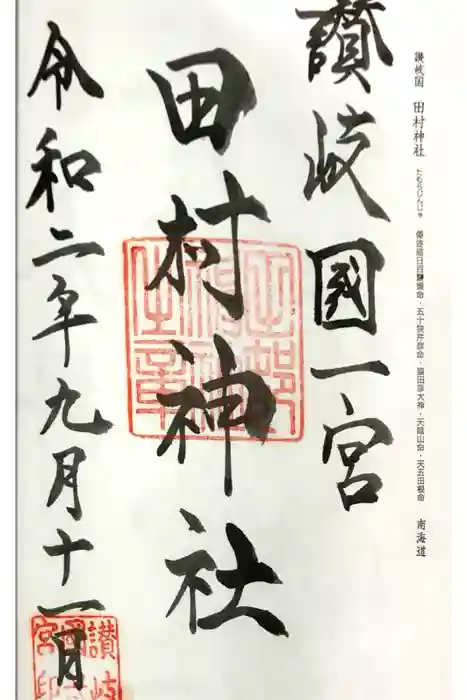 讃岐国　田村神社　たむらじんじゃ　倭迹迹日百襲姫命・五十狭芹彦命・猿田彦大神・天隠山命・天五田根命　南海道
讃岐國一宮
田村神社
令和二年九月十一日
田村神社之章
讃岐國一宮印